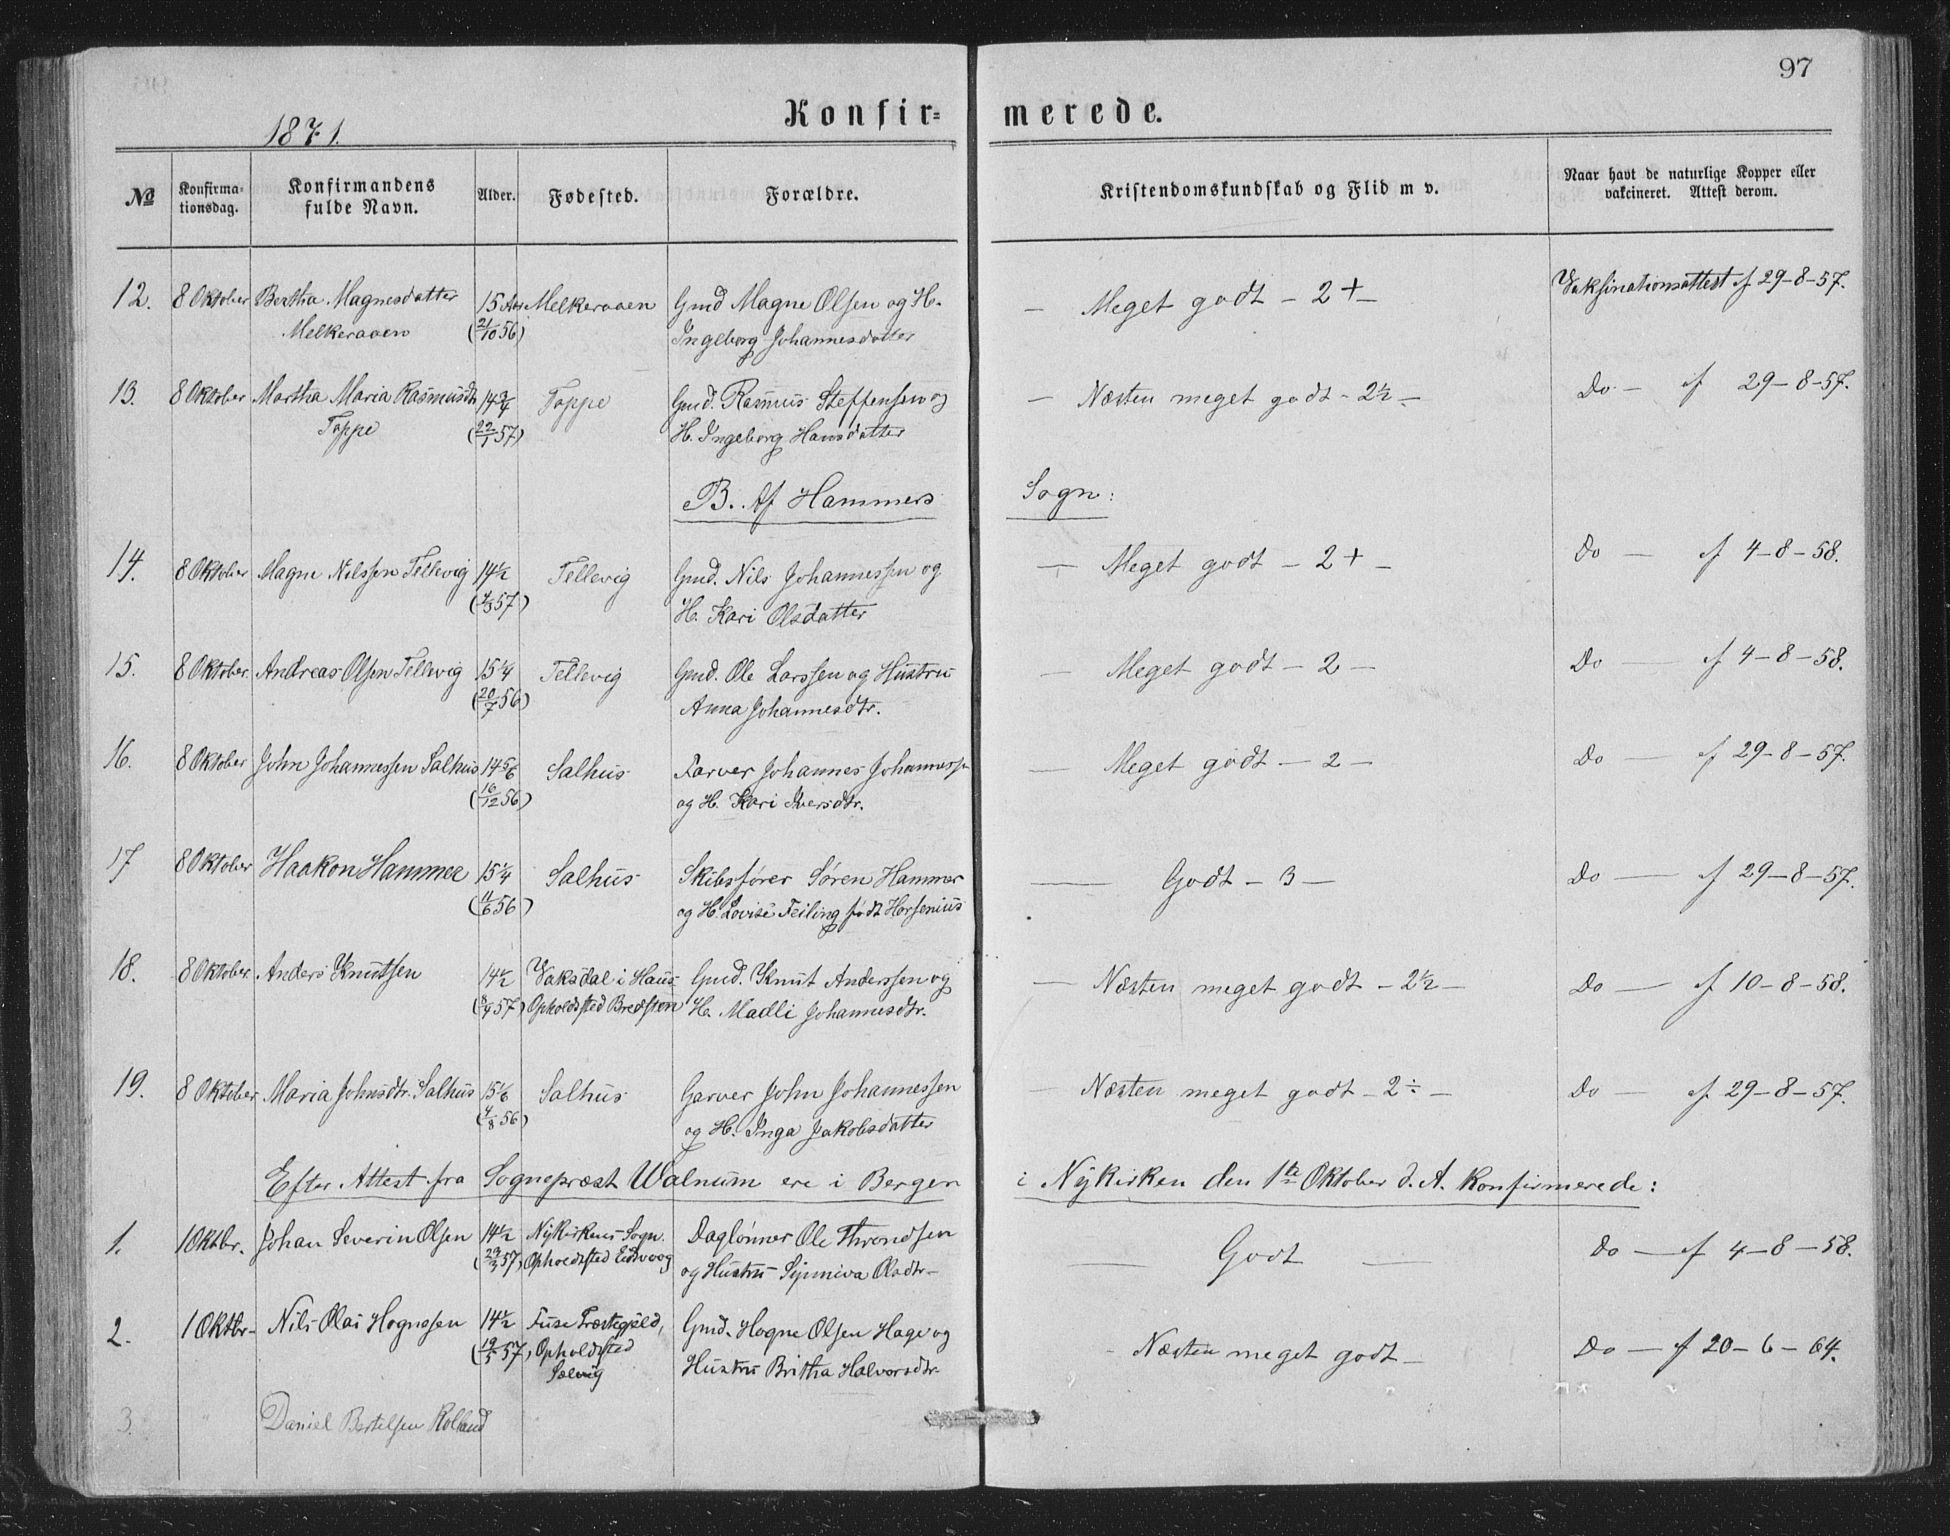 97
1871.
Konfir= merede.
No Konfirma-tionsdag. Konfirmandens fulde Navn. Alder. Fødested. Forældre. Kristendomskundskab og Flid m v. Naar havt de naturlige Kopper eller vakcineret. Attest derom.
12. 8 Oktober Bertha Magnesdatter 15 Aar Melkeraaen Gmd Magne Olsen og H. — Meget godt – 2+ – Vaksinationsattest af 29-8-57.
Melkeraaen (21/10 56) Ingeborg Johannesdatter
13. 8 Oktober Martha Maria Rasmusdtr 14 3/4 Toppe Gmd. Rasmus Steffensen og — Næsten meget godt – 2½ – Do — af 29-8-57.
Toppe (22/1 57) H. Ingeborg Hansdatter
B. Af Hammers Sogn:
14. 8 Oktober Magne Nilssen Tellevig 14½ Tellevig Gmd. Nils Johannessen og — Meget godt – 2+ – Do — af 4-8-58.
(4/3 57) H. Kari Olsdatter
15. 8 Oktober. Andreas Olsen Tellevig 15¼ Tellevig Gmd. Ole Larssen og Hustru — Meget godt – 2 – Do — af 4-8-58.
(20/7 56) Anna Johannesdtr.
16. 8 Oktober John Johannessen Salhus 14 5/6 Salhus Farver Johannes Johannessen — Meget godt – 2 – Do — af 29-8-57.
(16/12 56) og H. Kari Iversdtr.
17 8 Oktober Haakon Hammer 15¼ Salhus Skibsfører Søren Hammer — Godt – 3 – Do — af 29-8-57.
(11/6 56) og H. Lovise Feiling født Horsenius
18. 8 Oktober. Anders Knutsen 14½ Vaksdal i Haus Gmd. Knut Anderssen og — Næsten meget godt – 2½ – Do — af 10-8-58.
(8/4 57) Opholdsted Bredsteen H. Madli Johannesdtr.
19. 8 Oktober Maria Johnsdtr. Salhus 15 1/6 Salhus Garver John Johannessen — Næsten meget godt – 2÷ – Do — af 29-8-57.
(4/8 56) og H. Inga Jakobsdatter
Efter Attest fra Sognepræst Walnum ere i Bergen i Nykirken den 1te Oktober d. A. konfirmerede:
1. 1 Oktbr. Johan Severin Olsen 14½ Nykirkens Sogn. Daglønner Ole Throndsen — Godt — Do — af 4-8-58.
(29/3 57) Opholdsted Eidsvaag og Hustru Synniva Olsdtr–
2. 1 Oktbr– Nils Olai Hognesen 14½ Fuse Præstegjeld, Gmd. Hogne Olsen Hage og - Næsten meget godt – Do — af 20-6-64.
(19/5 57) Opholdsted Hustru Britha Halvorsdtr
Sælevig
3. Daniel Bertelsen Rolland